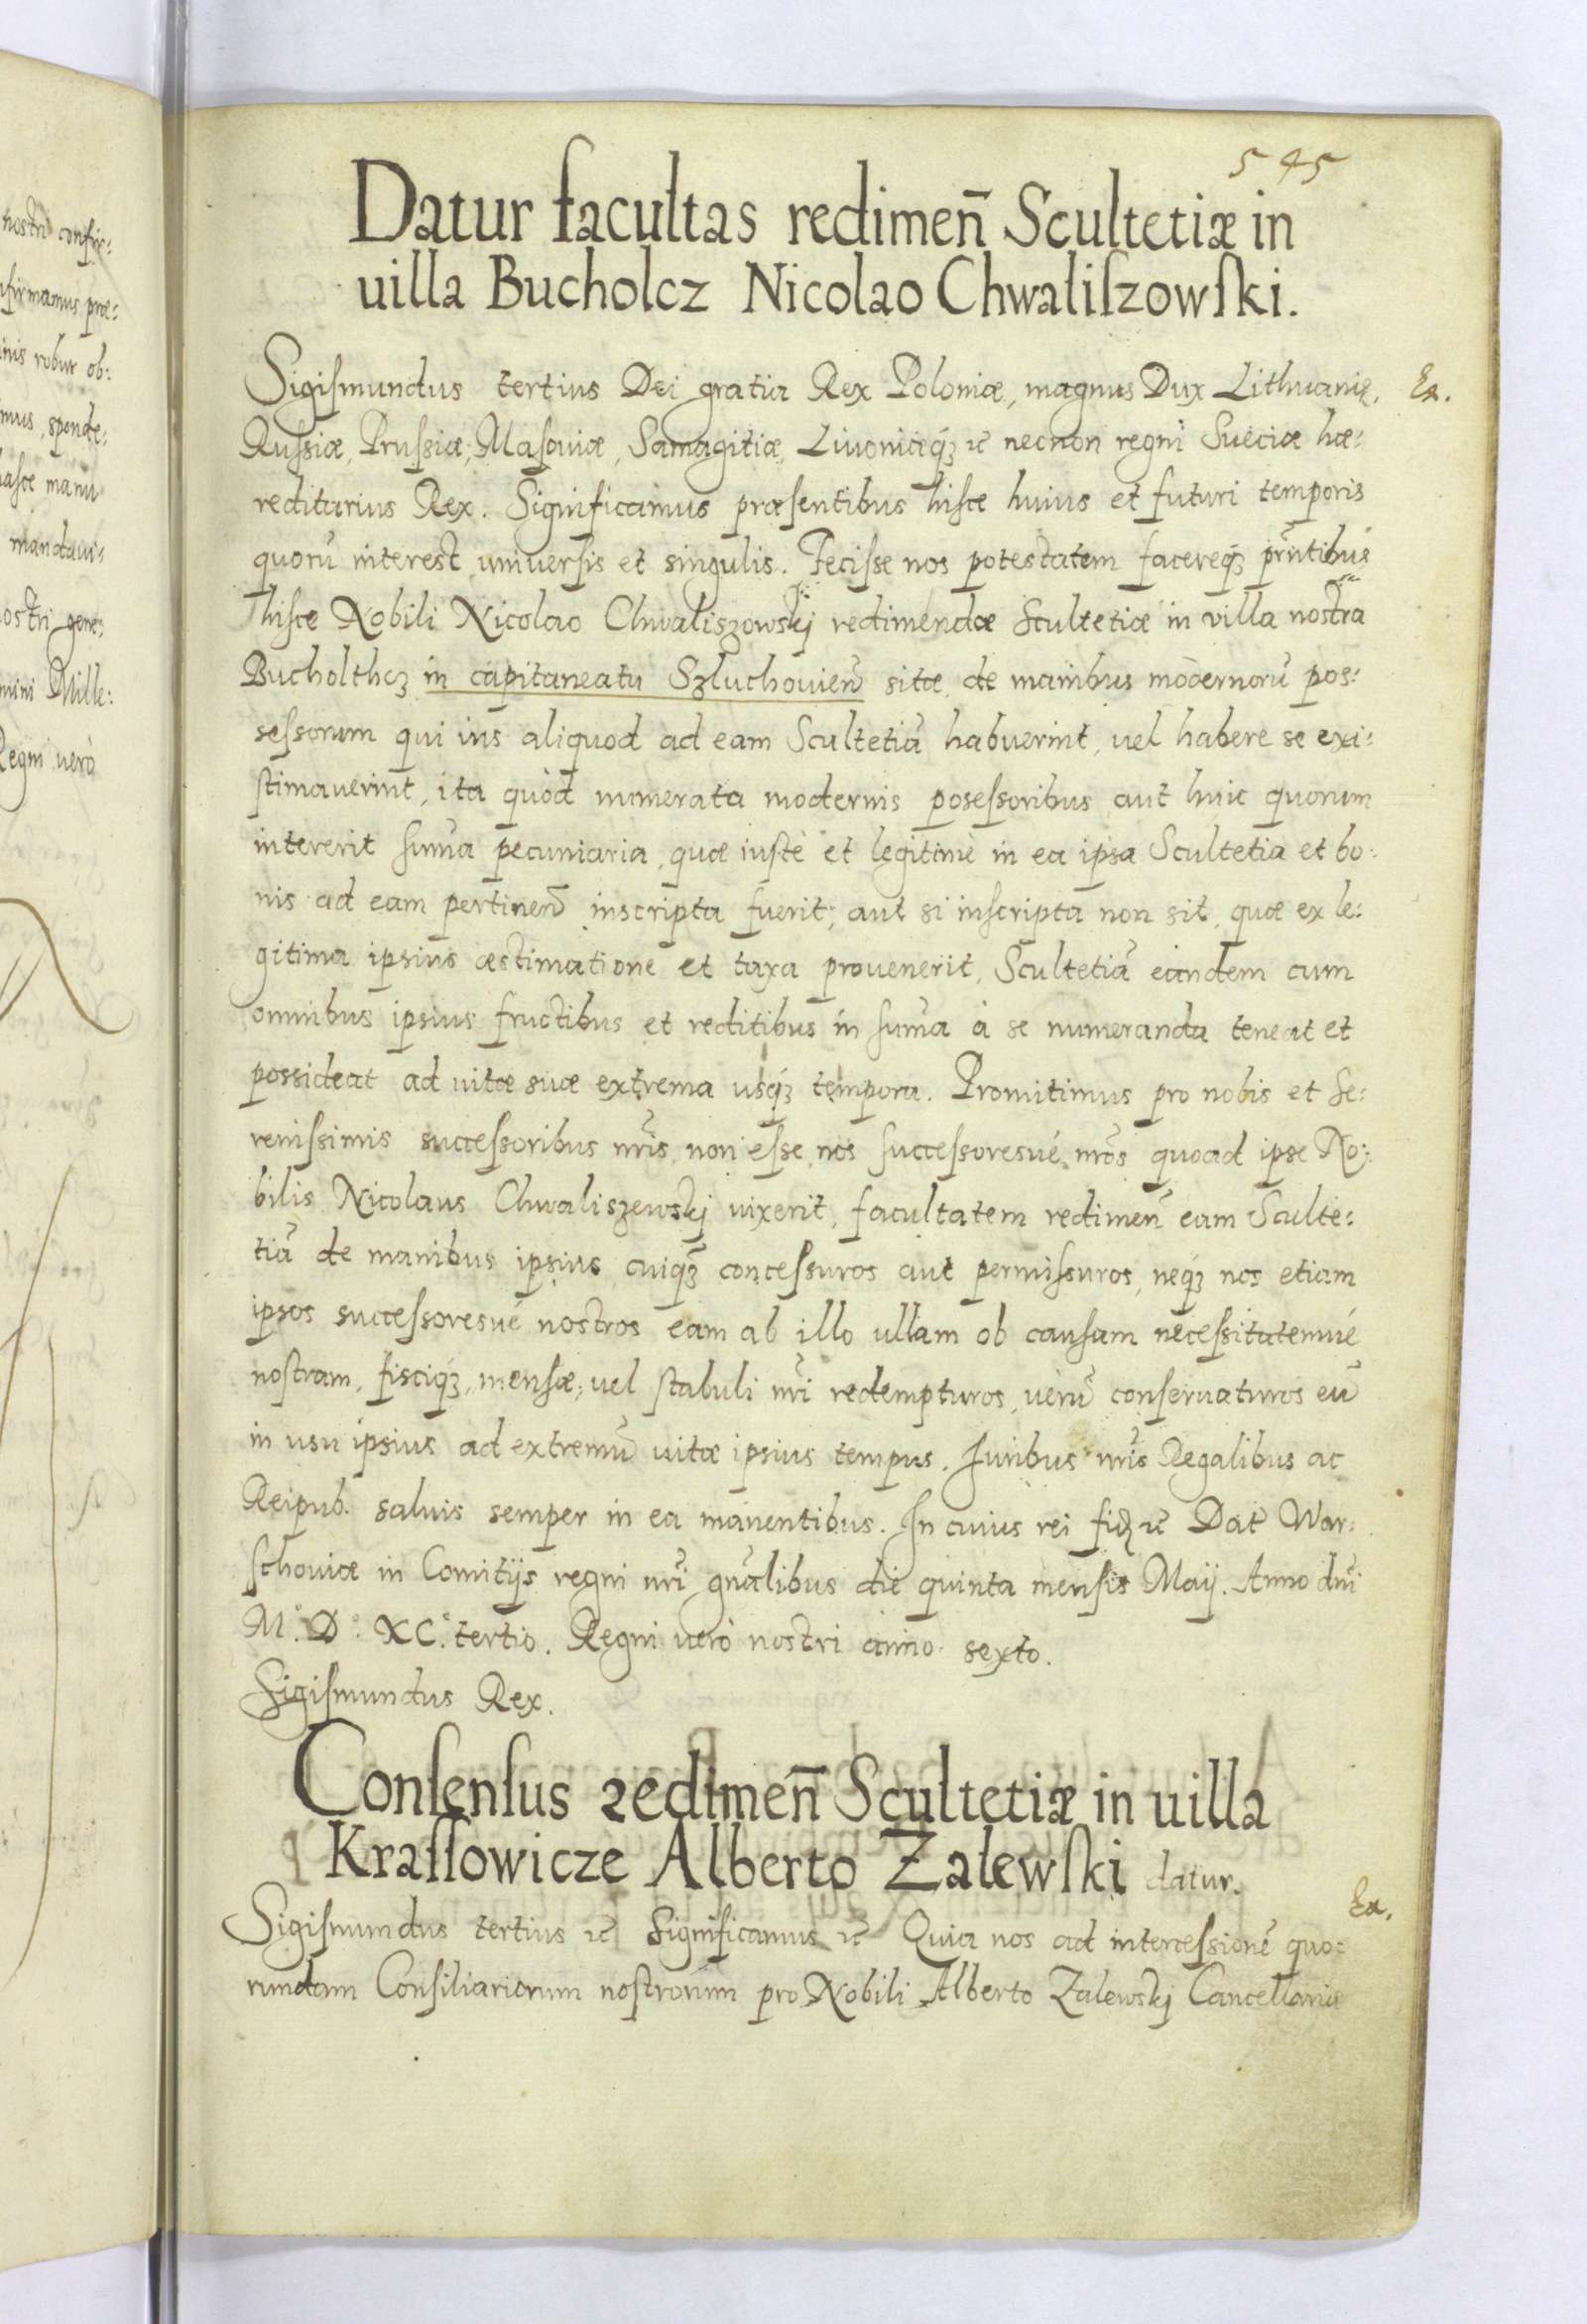 545
Datur facultas redimen̄ Scultetiæ in
uilla Bucholcz Nicolao Chwaliſzowſki.
Sigiſmundus tertius Dei gratia Rex Poloniæ, magnus Dux Lithuanię, Ex.
Ruſsiæ, Pruſsiæ, Maſouiæ, Samagitiæ, Liuoniæq́ꝫ ꝛc necnon regni Sueciæ hæ:
reditarius Rex. Significamus præſentibus hiſce huius et futuri temporis
quorū interest uniuerſis et singulis. Feciſse nos potestatem facereq́ꝫ pr̄ntibus
hiſce Nobili Nicolao Chwaliszowskj redimendæ Scultetiæ in villa nostra
Bucholthcz in capitaneatu Szluchouien̄ sitæ, de manibus modernorū pos:
seſsorum qui ius aliquod ad eam Scultetiā habuerint, uel habere se exi:
ſtimauerint, ita quòd numerata modernis poseſsoribus aut huic quorum
intererit sum̄a pecuniaria, quæ iuſtè et legitimè in ea ipsa Scultetia et bo:
nis ad eam pertinen̄ inscripta fuerit, aut si inſcripta non sit, quæ ex le:
gitima ipsius æstimatione et taxa prouenerit, Scultetiā eandem cum
omnibus ipsius fructibus et reditibus in sum̄a à se numeranda teneat et
possideat ad uitæ suæ extrema usq́ꝫ tempora. Promitimus pro nobis et Se:
reniſsimis succeſsoribus nr̄is non eſse nos succeſsoresué nr̄os quoad ipse No:
bilis Nicolaus Chwaliszewskj uixerit, facultatem redimen̄ eam Sculte:
tiā de manibus ipsius cuiq́ꝫ conceſsuros aut permiſsuros, neq́ꝫ nos etiam
ipsos succeſsoresué nostros eam ab illo ullam ob cauſam neceſsitatemué
noſtram, fisciq́ꝫ, menſæ, uel ſtabuli nr̄i redempturos, uerū conſeruaturos eū
in usu ipsius ad extremū uitæ ipsius tempus. Juribus nr̄is Regalibus ac
Reipub. saluis semper in ea manentibus. In cuius rei fidꝫ ꝛc Dat̄ War:
ſchouiæ in Comitijs regni nr̄i gn̄alibus die quinta menſis Maij. Anno dn̄i
M.° D.° XC.° tertio. Regni uerò nostri anno sexto.
Sigiſmundus Rex.
Conſenſus redimen̄ Scultetiæ in uilla
Kraſſowicze Alberto Zalewſki datur.
Ex.
Sigiſmundus tertius ꝛc Significamus ꝛc Quia nos ad interceſsionē quo:
rundam Conſiliariorum noſtrorum pro Nobili Alberto Zalewskj Cancellariæ
nostri
inis robur ob:
mus, sponde:
manu
mandaui:
ostri gene:
mini Mille:
Regni uerò